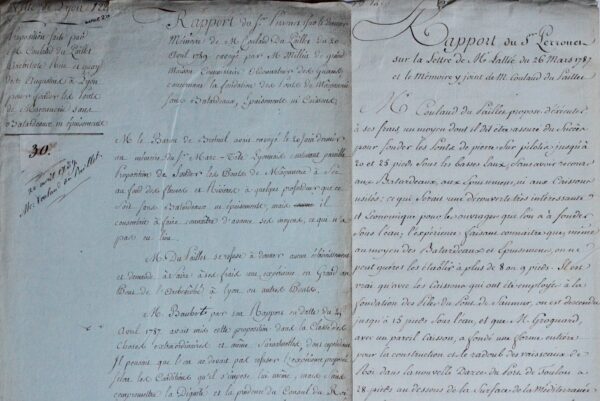 Ville de Lyon
avril 20
Proposition faite par
M. Couland du Saillet
Architecte Rue et quay
des Augustins à Lyon
pour fonder les Ponts
de Maçonnerie sans
Batardeaux ni épuisements
30.
20 avril 1787.
Rapport du Sr. Perronet sur le dernier
Mémoire de M. Couland du Saillet du 20
Avril 1787 envoyé par M. Millin de grand
Maison
concernant la fondation des Ponts de Maçonnerie
sans Batardeaux, Epuisements ni Caissons
M. le Baron de Breteuil avoit envoyé le
un mémoire du Sr.
proposition de fonder les Ponts de Maçonnerie à Sec au
fond des fleuves et Rivières à quelque profondeur que ce
soit sans Batardeaux ni épuisement, mais
consentir à faire connoitre d'avance ses moyens, ce qui n'a
pas eu lieu.
M. Du Saillet se refuse à donner aucun éclaircissement
et demande à faire à ses frais une expérience en Grand au
Pont de à Lyon ou autres Ponts.
M. par son Rapport en datte du 24
Avril 1787 avoit mis cette proposition dans la Classe des
Choses extraordinaires et même
Il pensoit que l'on ne devoit pas refuser l'expérience proposée
selon les Conditions qu'il s'impose lui même, mais sans
compromettre la Dignité et la prudence du Conseil du Roi
Rapport du Sr. Perronet
sur la Lettre de M. Sallé du 26 Mars 1787
et le Mémoire y joint de M. Couland du Saillet
M. Couland du Saillet propose d'exécuter
à ses frais un moyen dont il dit être assuré du succès
pour fonder les Ponts de pierre sur pilotis jusqu'à
20 et 25 pieds sous les basses Eaux, sans avoir recours
aux Batardeaux, aux Epuisemens, ni aux Caissons
usités; ce qui seroit une découverte très intéressante
et Economique pour les ouvrages que l'on a à fonder
sous l'eau, l'expérience faisant connoitre que, même
au moyen des Batardeaux et épuisemens, on ne
peut guères les établir à plus de 8 ou 9 pieds. Il est
vrai qu'avec les Caissons qui ont été employés à la
fondation des Piles du Pont de Saumur, on est descendu
jusqu'à 15 pieds sous l'eau, et que M. Groignard,
avec un pareil Caisson, a fondé une forme entière
pour la construction et le radoub des vaisseaux du
Roi dans la nouvelle Darce du Port de Toulon à
28 pieds au dessous de la Surface de la Méditerranée